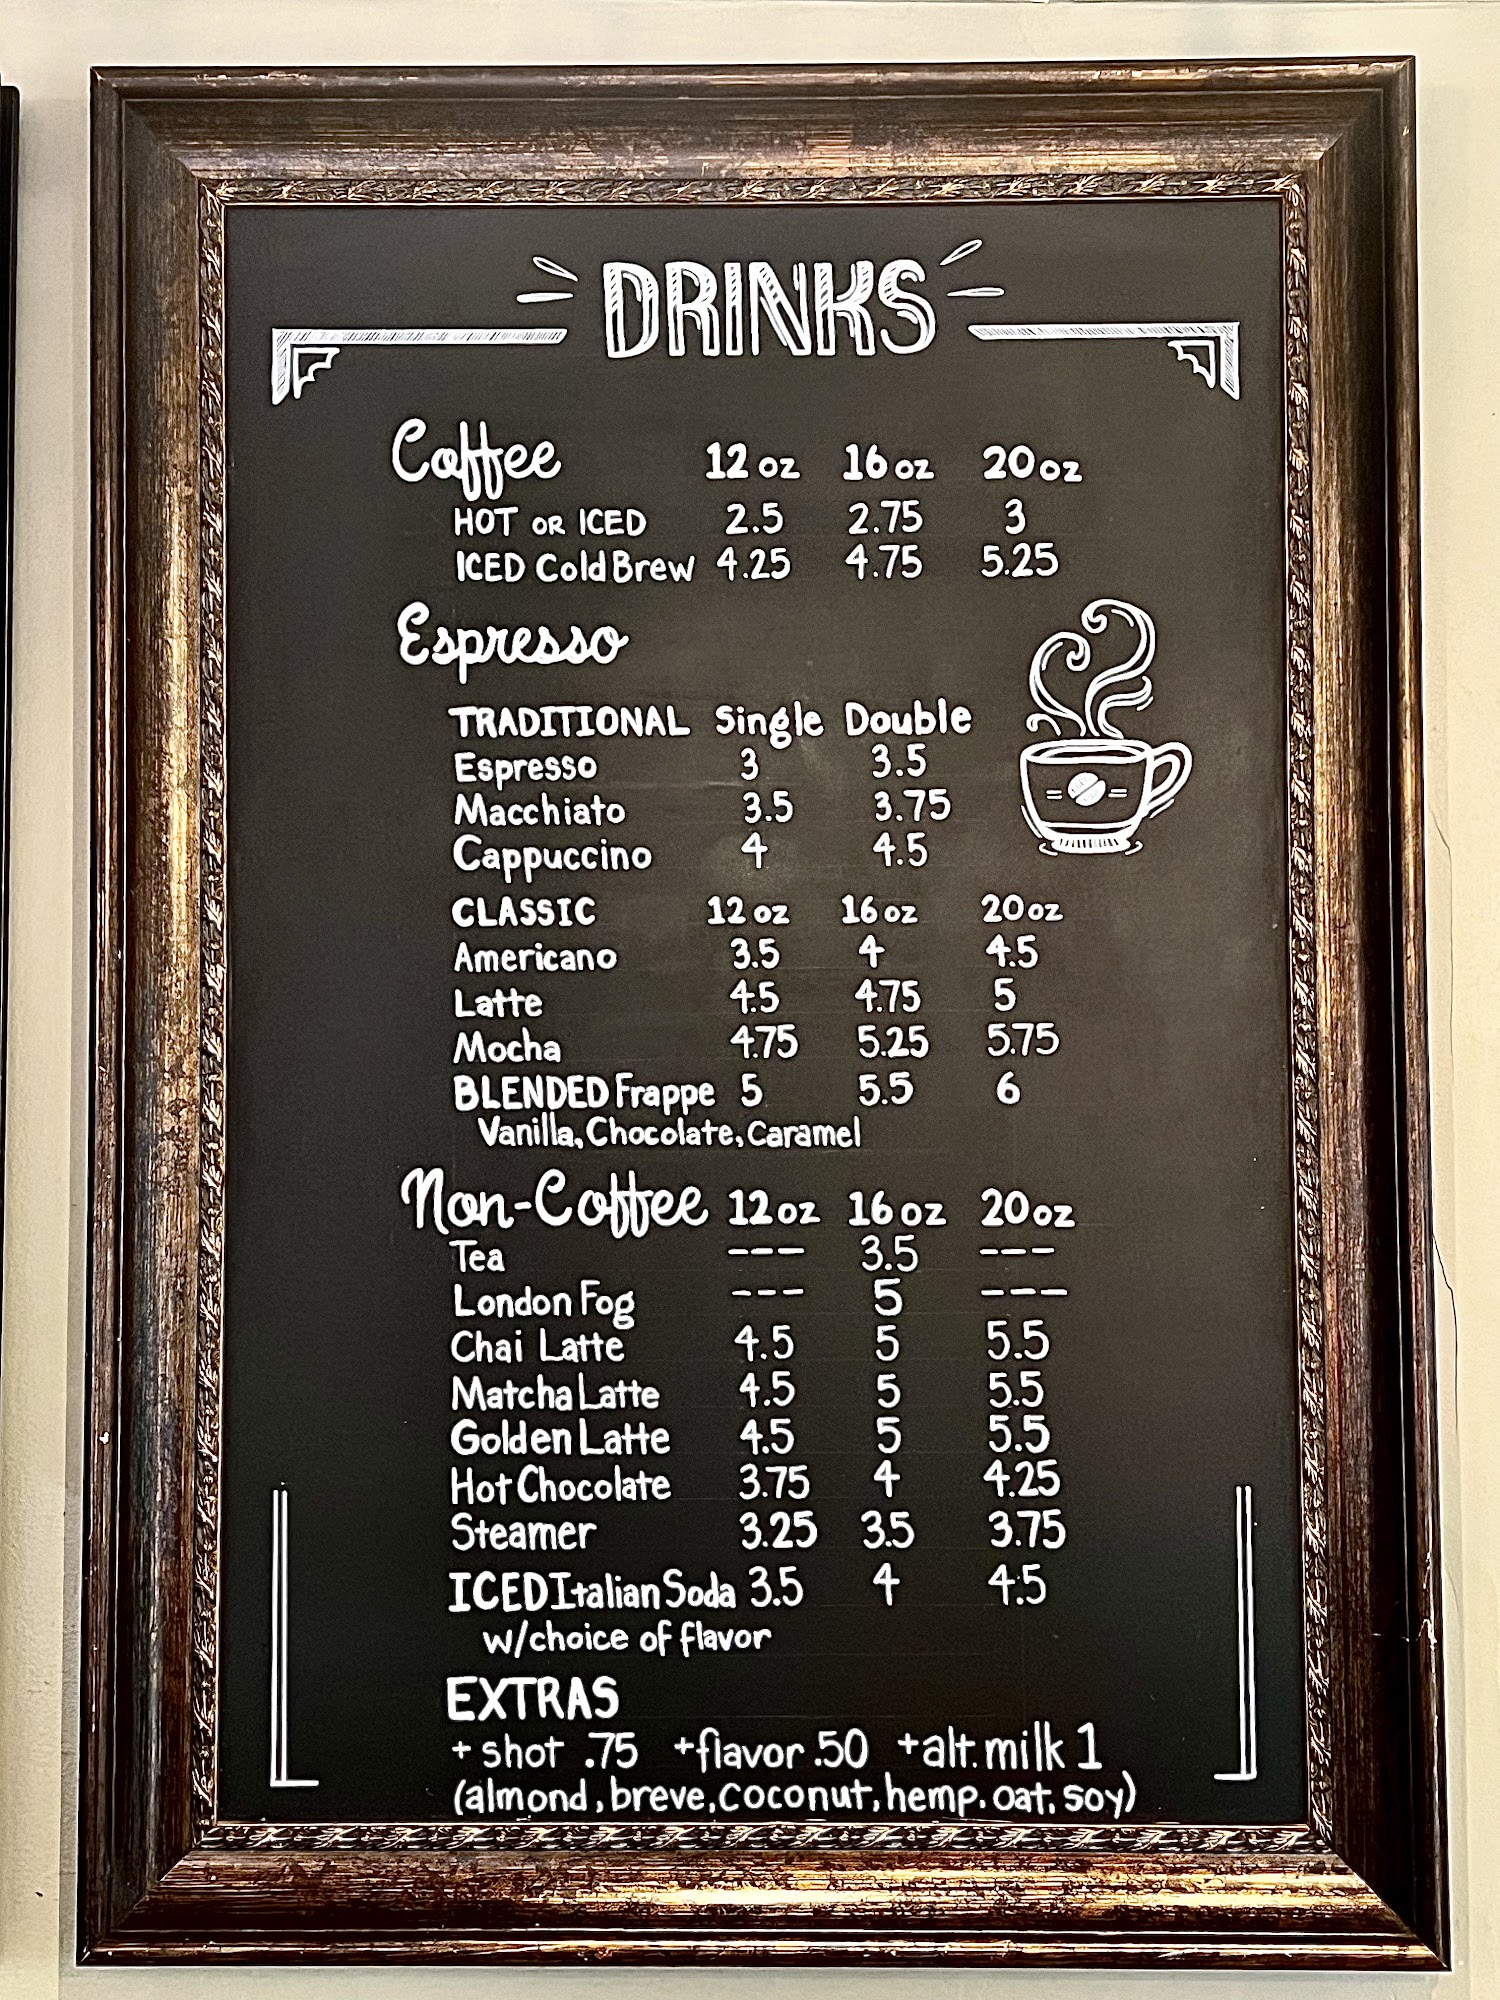 DRINKS
Coffee 12 oz 16 oz 20 oz
HOT OR ICED 2.5 2.75 3
ICED Cold Brew 4.25 4.75 5.25
Espresso
TRADITIONAL Single Double
Espresso 3 3.5
Macchiato 3.5 3.75
Cappuccino 4 4.5
CLASSIC 12 oz 16 oz 20 oz
Americano 3.5 4 4.5
Latte 4.5 4.75 5
Mocha 4.75 5.25 5.75
BLENDED Frappe 5 5.5 6
Vanilla, Chocolate, Caramel
Non-Coffee 12 oz 16 oz 20 oz
Tea --- 3.5 ---
London Fog --- 5 ---
Chai Latte 4.5 5 5.5
Matcha Latte 4.5 5 5.5
Golden Latte 4.5 5 5.5
Hot Chocolate 3.75 4 4.25
Steamer 3.25 3.5 3.75
ICED Italian Soda 3.5 4 4.5
w/choice of flavor
EXTRAS
+ shot .75 +flavor .50 +alt. milk 1
(almond, breve, coconut, hemp, oat, soy)